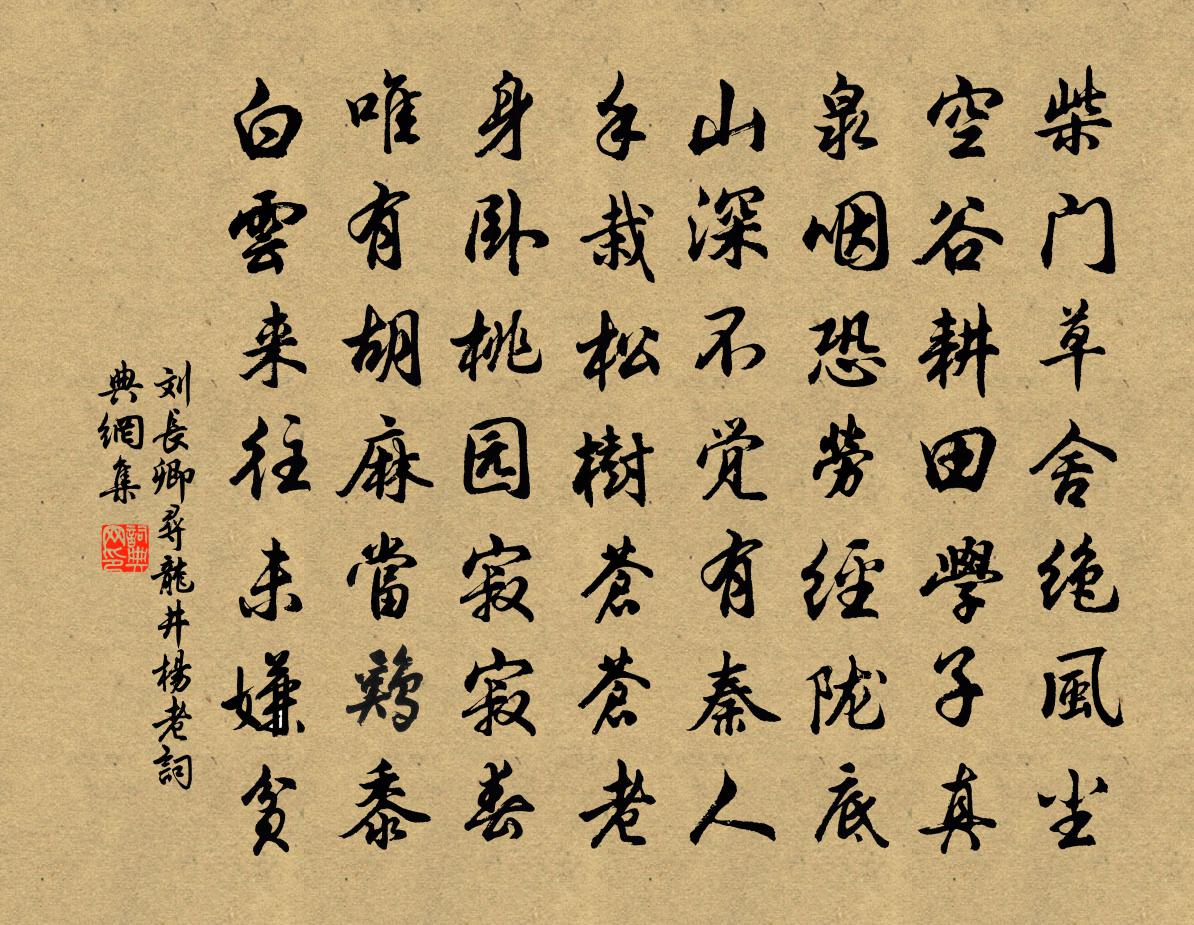 柴门草舍绝風尘
空谷耕田學子真
泉咽恐勞經陇底
山深不觉有秦人
手栽松樹蒼蒼老
身卧桃园寂寂春
唯有胡麻當鷄黍
白雲来往未嫌贫
刘長卿尋龍井楊老詞
典網集
詞典网印